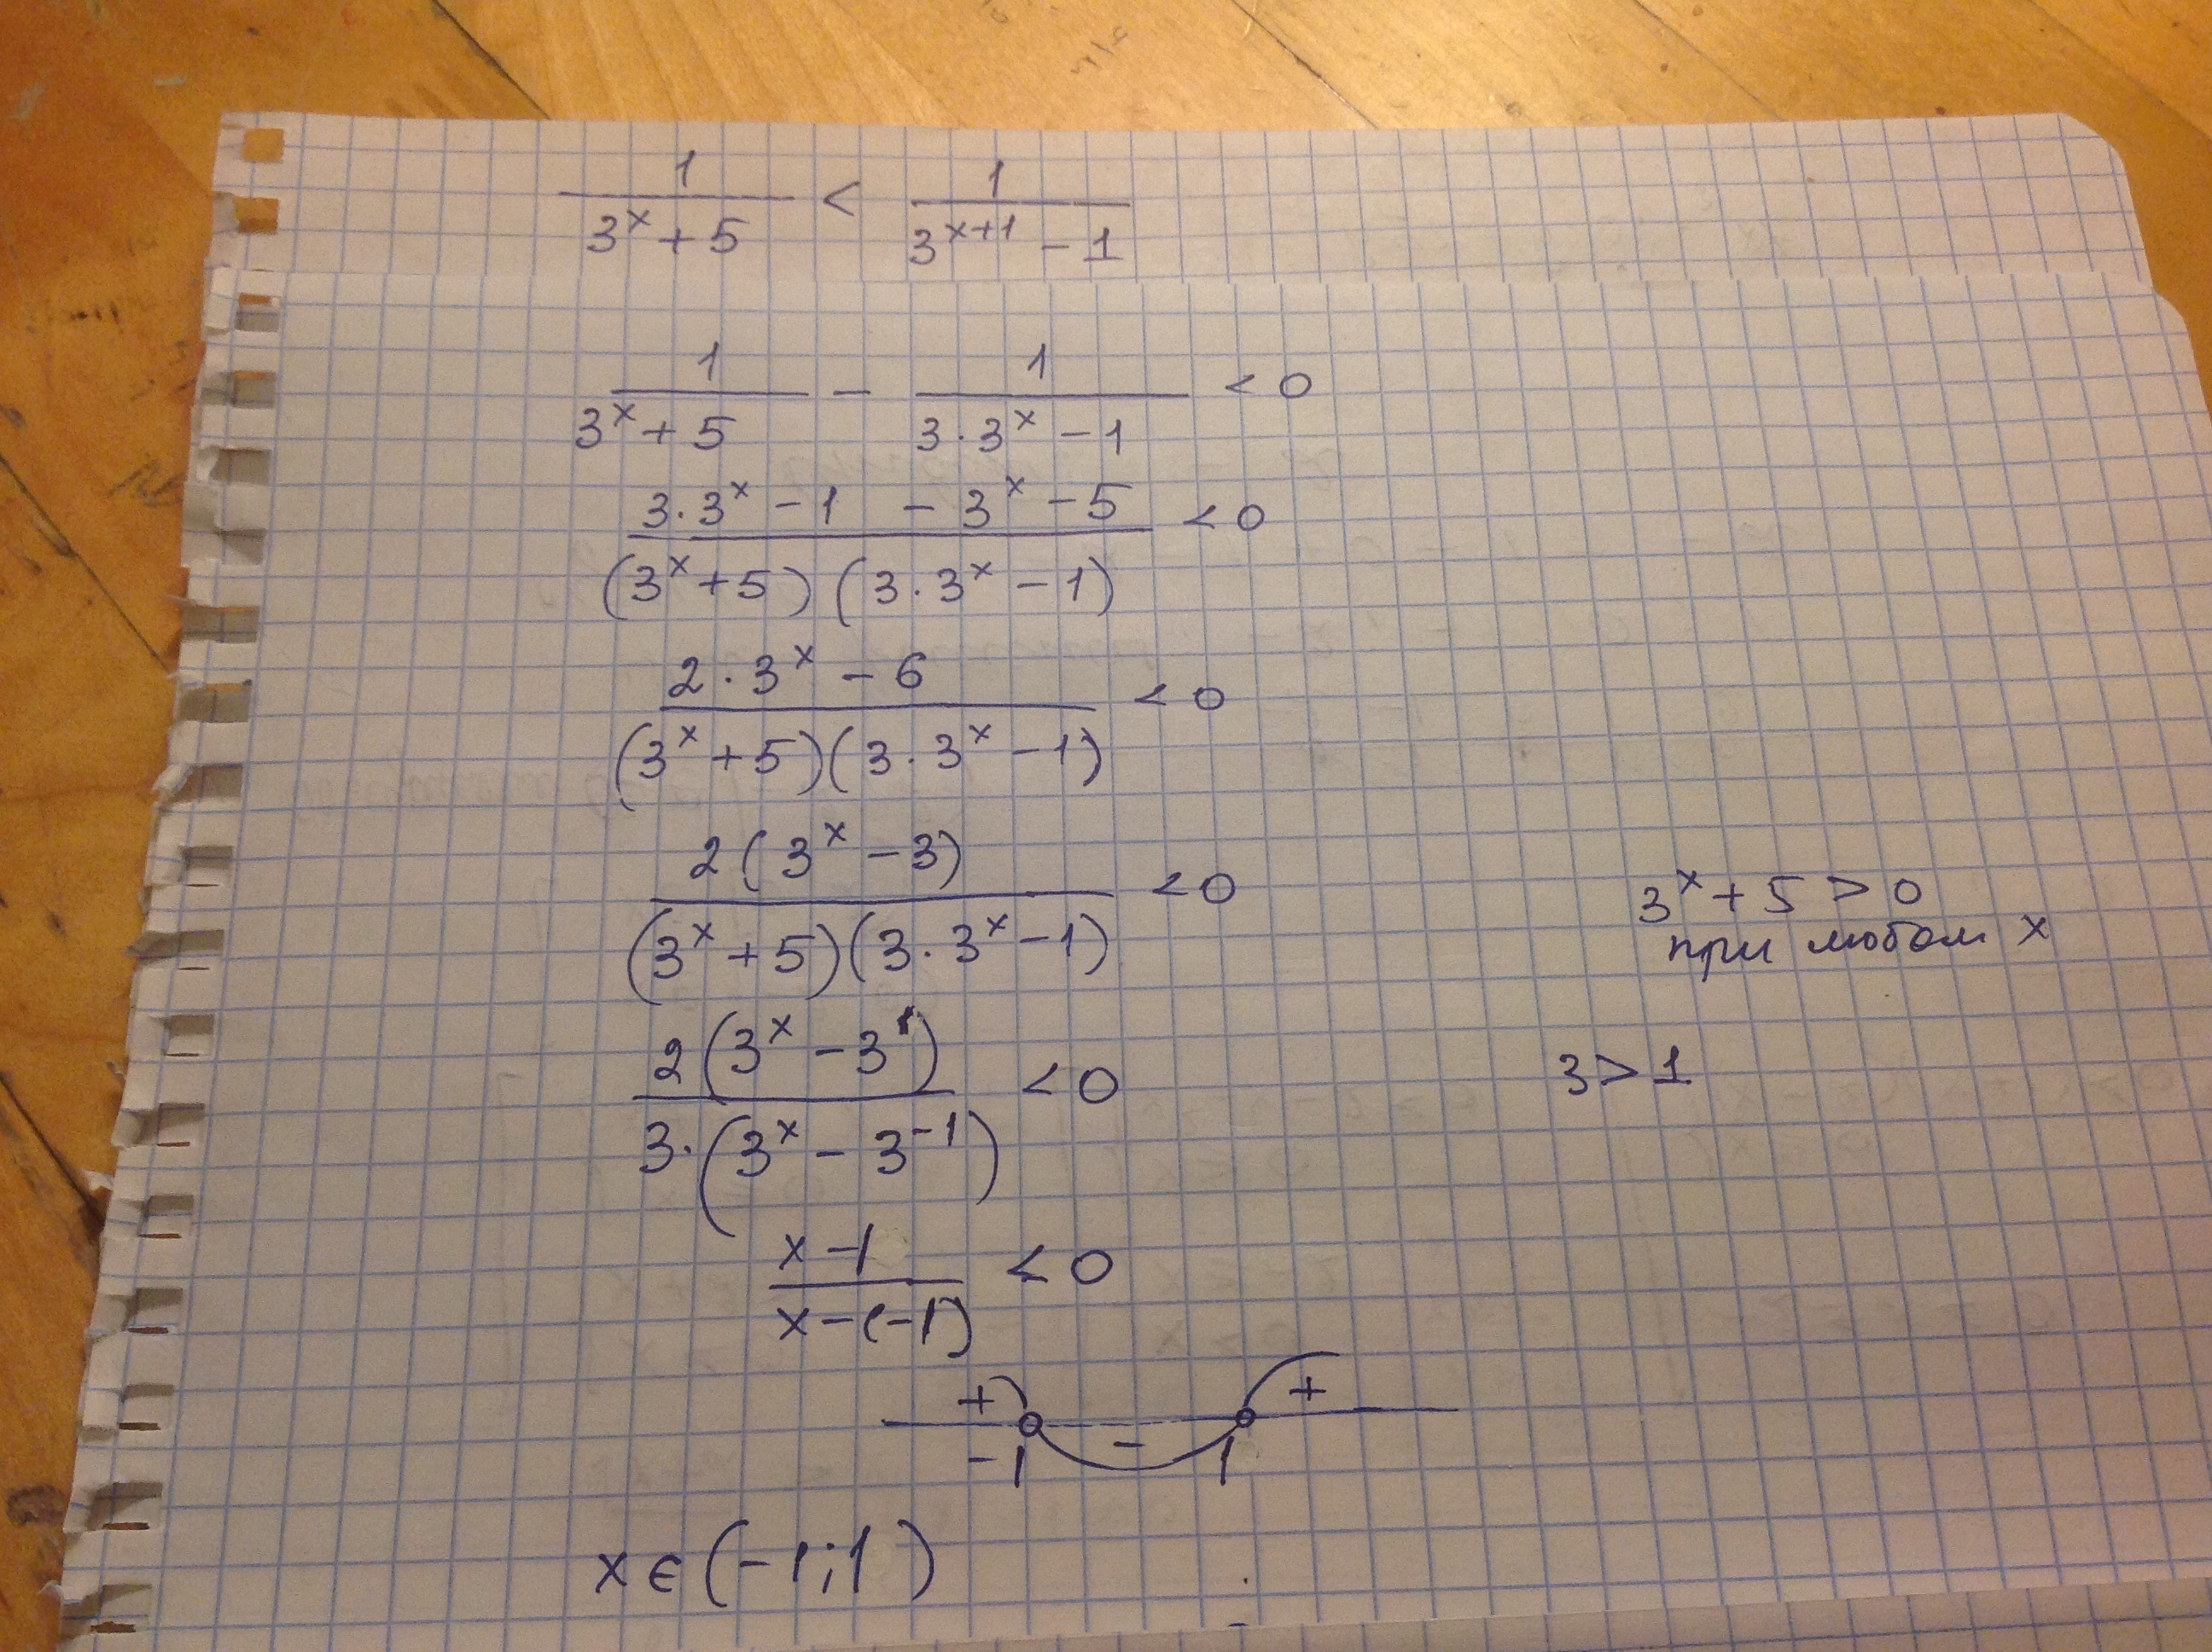 1/(3^x + 5) < 1/(3^(x+1) - 1)
1/(3^x + 5) - 1/(3·3^x - 1) < 0
(3·3^x - 1 - 3^x - 5)/((3^x + 5)(3·3^x - 1)) < 0
(2·3^x - 6)/((3^x + 5)(3·3^x - 1)) < 0
2(3^x - 3)/((3^x + 5)(3·3^x - 1)) < 0
3^x + 5 > 0
при любом x
2(3^x - 3^1)/(3·(3^x - 3^(-1))) < 0
3 > 1
(x - 1)/(x - (-1)) < 0
+ - +
-1 1
x ∈ (-1; 1)